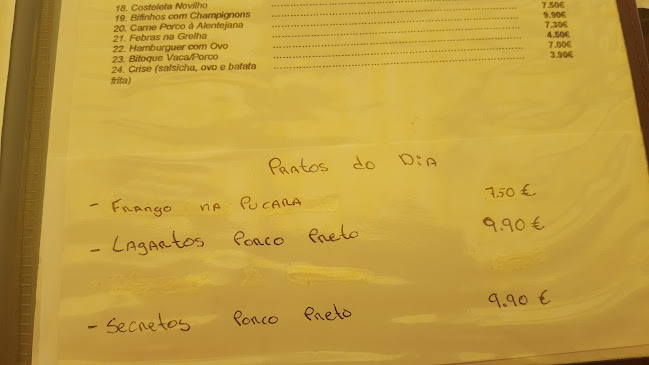 18. Costeleta Novilho ........ 7.50€
19. Bifinhos com Champignons ........ 9.90€
20. Carne Porco à Alentejana ........ 7.30€
21. Febras na Grelha ........ 4.50€
22. Hamburguer com Ovo ........ 7.00€
23. Bitoque Vaca/Porco ........ 3.90€
24. Crise (salsicha, ovo e batata
frita)
Pratos do Dia
- Frango na Pucara 7.50 €
- Lagartos Porco Preto 9.90 €
- Secretos Porco Preto 9.90 €